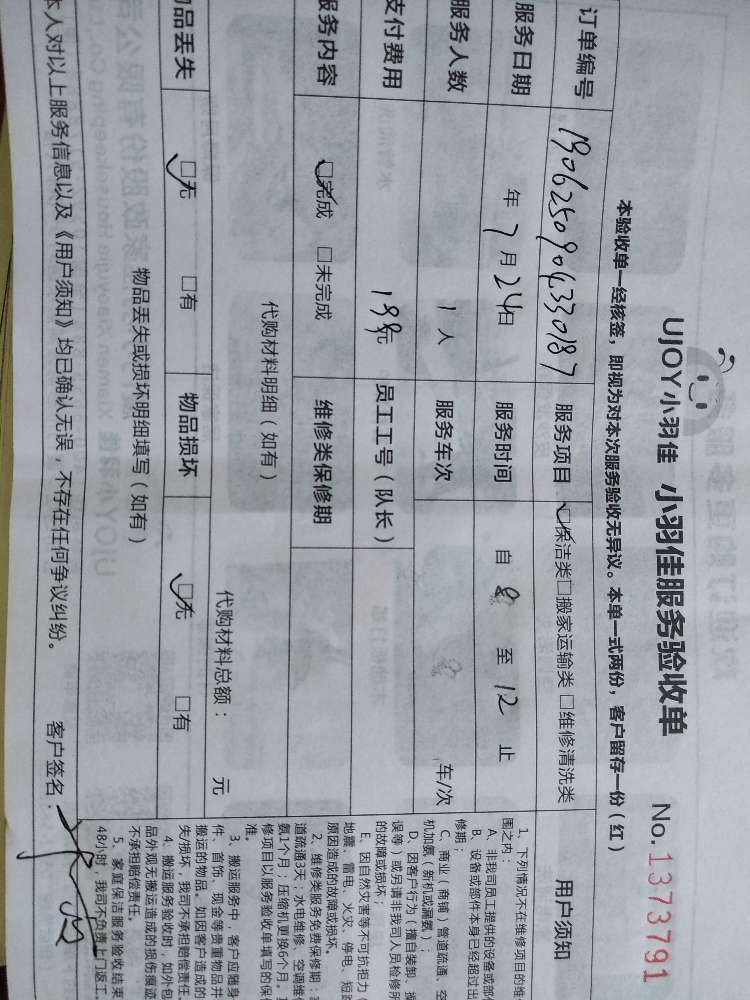 UJOY小羽佳 小羽佳服务验收单 No.1373791
本验收单一经核签，即视为对本次服务验收无异议。本单一式两份，客户留存一份（红）
订单编号 1906250904330187 服务项目 保洁类 □搬家运输类 □维修清洗类 用户须知
服务日期 年 7 月 24 日 服务时间 自 8 至 12 止
服务人数 1 人 服务车次 车/次
支付费用 199元 员工工号（队长）
服务内容 □完成 □未完成 维修类保修期
代购材料明细（如有）
代购材料总额： 元
物品丢失 □无 □有 物品损坏 □无 □有
物品丢失或损坏明细填写（如有）
本人对以上服务信息以及《用户须知》均已确认无误，不存在任何争议纠纷。 客户签名：
1、下列情况不在维修项目的维
围之内：
A、非我司员工提供的设备或部
B、设备或部件本身已经超过出
修期；
C、商业（商铺）管道疏通、空
机加氨（新机或漏氨）；
D、因客户行为（擅自装卸、操
误等）或另请非我司人员检修所
的故障或损坏；
E、因自然灾害等不可抗拒力（
地震、雷电、火灾、停电、短路
原因造成的故障或损坏。
2、维修类服务免费保修期：
道疏通3天；水电维修、空调维
氨1个月；压缩机更换6个月。
修项目以服务验收单填写的保
准。
3、搬运服务中，客户应随身
件、首饰、现金等贵重物品并
搬运的物品。如因客户造成的
失/损坏，我司不承担赔偿责任
4、搬运服务验收时，如外包
品外观无搬运造成的损伤痕迹
不承担赔偿责任。
5、家庭保洁服务验收结束
48小时，我司不负责上门返工。